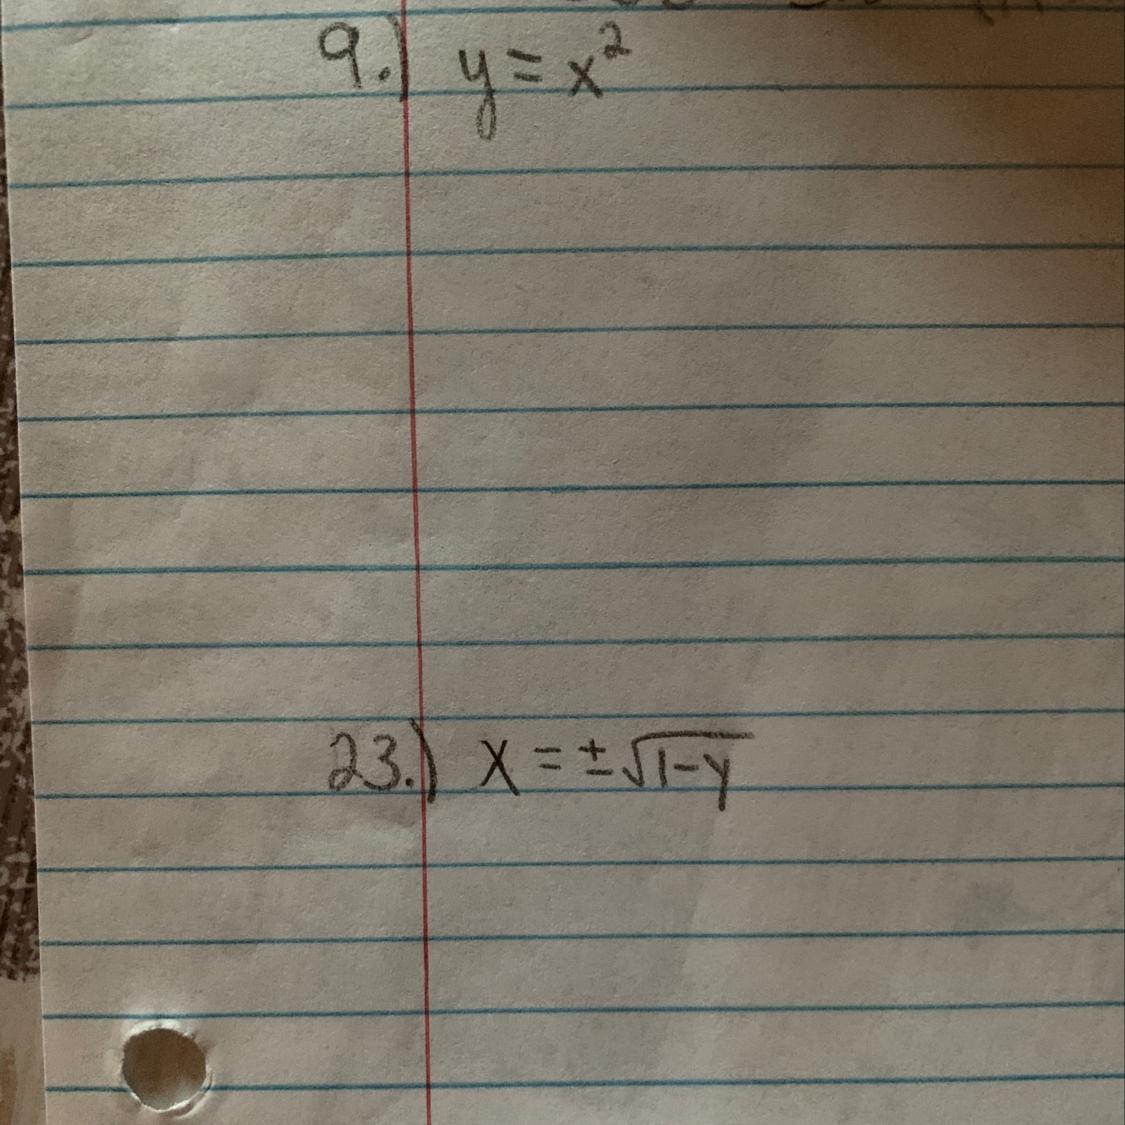 9.) y = x²
23.) x = ±√1-y